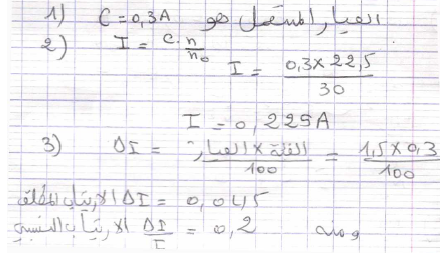 1) C = 0,3A العيار المستعمل هو
2) I = c.n/n₀
I = 0,3 x 22,5 / 30
I = 0,225A
3) ΔI = الفئة x العيار / 100 = 1,5 x 0,3 / 100
الارتياب المطلق ΔI = 0,045
ومنه الارتياب النسبي ΔI/I = 0,2